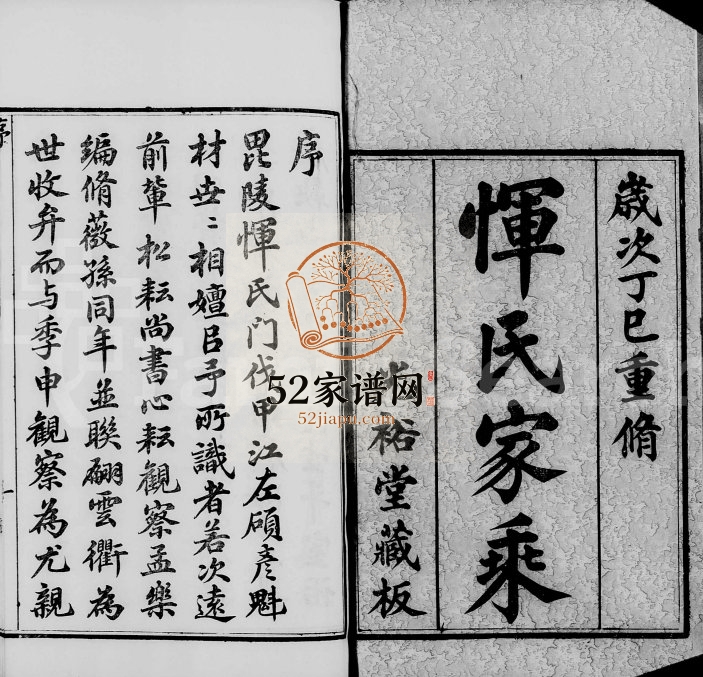 歲次丁巳重脩
惲氏家乘
裕堂藏板
序
毘陵惲氏門伐甲江左碩彥魁
材世〻相嬗㠯予所識者若次遠
前輩松耘尚書心耘觀察孟樂
編脩薇孫同年並聯翩雲衢為
世收弁而与季申觀察為尤親
序
一
52家谱网
52jiapu.com